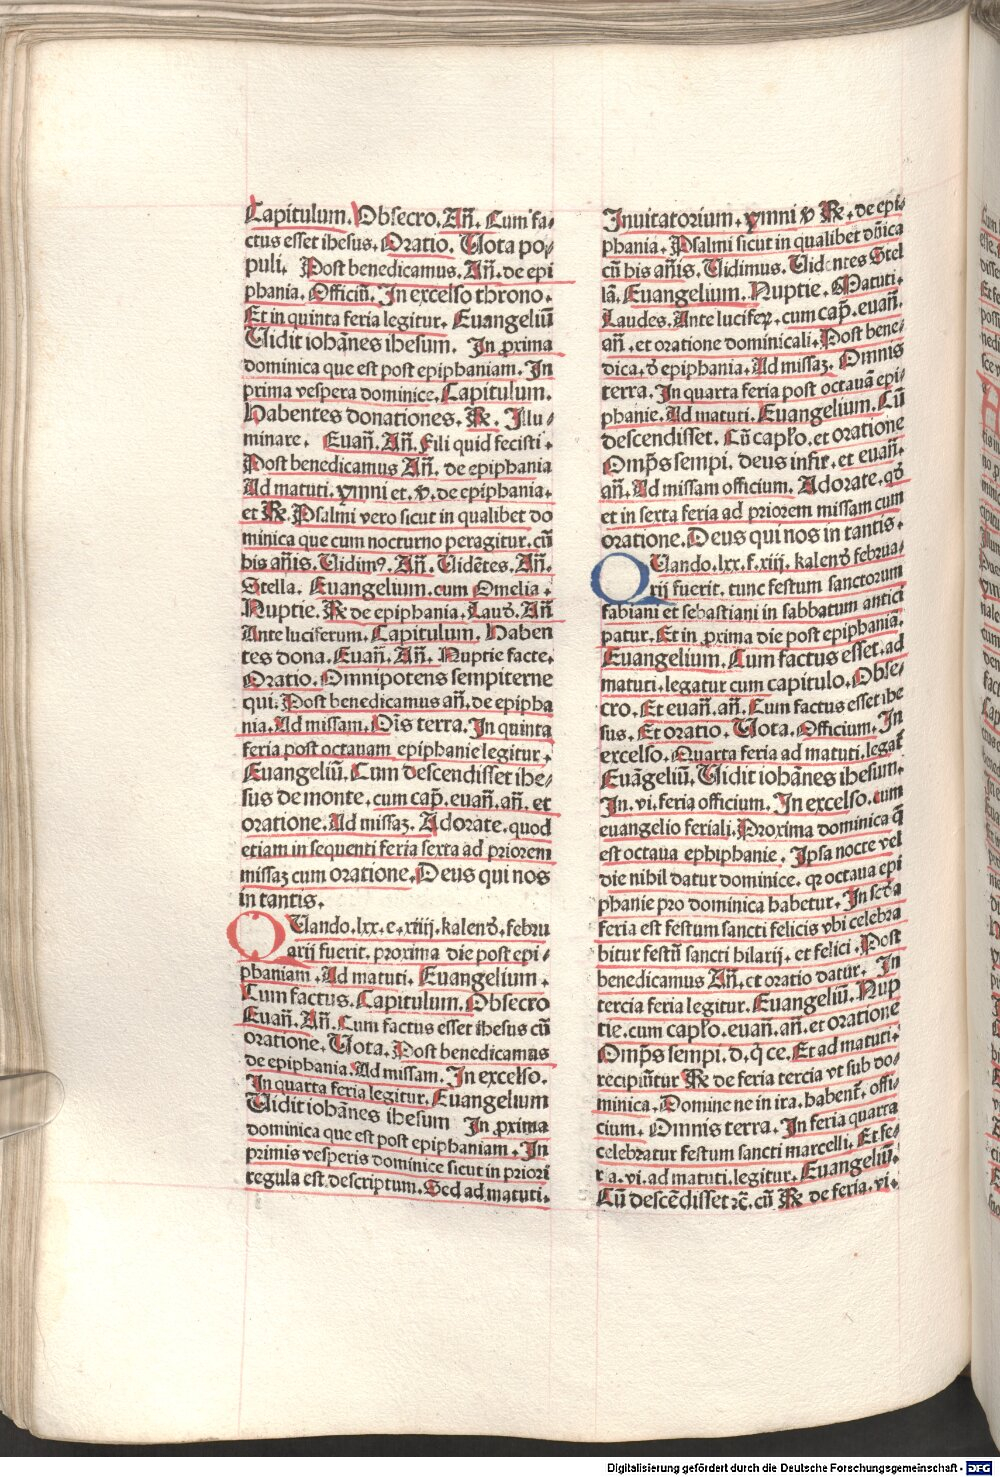 Capitulum. Obsecro. Añ. Cum fa⸗
ctus esset ihesus. Oratio. Uota po⸗
puli. Post benedicamus. Añ. de epi
phania. Officiũ. In excelso throno.
Et in quinta feria legitur. Euangeliũ
Uidit iohãnes ihesum. In ꝓxima
dominica que est post epiphaniam. In
prima vespera dominice. Capitulum.
Habentes donationes. ℟. Illu⸗
minare. Euañ. Añ. Fili quid fecisti.
Post benedicamus Añ. de epiphania
Ad matuti. ymni et. v̄. de epiphania.
et ℟. Psalmi vero sicut in qualibet do
minica que cum nocturno peragitur. cũ
his añis. Uidimꝰ. Añ. Uidẽtes. Añ.
Stella. Euangelium. cum Omelia.
Nuptie. ℟ de epiphania. Laud̄. Añ
Ante luciferum. Capitulum. Haben
tes dona. Euañ. Añ. Nuptie facte.
Oratio. Omnipotens sempiterne
qui. Post benedicamus añ. de epipha
nia. Ad missam. Oı̃s terra. In quinta
feria post octauam epiphanie legitur.
Euangeliũ. Cum descendisset ihe⸗
sus de monte. cum cap̄. euañ. añ. et
oratione. Ad missaꝫ. Adorate. quod
etiam in sequenti feria sexta ad priorem
missaꝫ cum oratione. Deus qui nos
in tantis.
QUando. lxx. e. xiiij. kalend̄. febru
arij fuerit. proxima die post epi⸗
phaniam. Ad matuti. Euangelium.
Cum factus. Capitulum. Obsecro
Euañ. Añ. Cum factus esset ihesus cũ
oratione. Uota. Post benedicamus
de epiphania. Ad missam. In excelso.
In quarta feria legitur. Euangelium
Uidit iohãnes ihesum In ꝓxima
dominica que est post epiphaniam. In
primis vesperis dominice sicut in priori
regula est descriptum. Sed ad matuti.
Inuitatorium. ymni v̄ ℟. de epi⸗
phania. Psalmi sicut in qualibet dñica
cũ his añis. Uidimus. Uidentes Stel
lã. Euangelium. Nuptie. Matuti.
Laudes. Ante luciferꝝ. cum cap̄. euañ.
añ. et oratione dominicali. Post bene⸗
dica. d̄ epiphania. Ad missaꝫ. Omnis
terra. In quarta feria post octauã epi⸗
phanie. Ad matuti. Euangelium. Cũ
descendisset. Cũ capło. et oratione
Omp̄s sempi. deus infir. et euañ.
añ. Ad missam officium. Adorate. qd̄
et in sexta feria ad priorem missam cum
oratione. Deus qui nos in tantis.
QUando. lxx. f. xiij. kalend̄ februa⸗
rij fuerit. tunc festum sanctorum
fabiani et sebastiani in sabbatum antici
patur. Et in ꝓxima die post epiphania.
Euangelium. Cum factus esset. ad
matuti. legatur cum capitulo. Obse⸗
cro. Et euañ. añ. Cum factus esset ihe
sus. Et oratio. Uota. Officium. In
excelso. Quarta feria ad matuti. legat̃
Euãgeliũ. Uidit iohãnes ihesum.
In. vi. feria officium. In excelso. cum
euangelio feriali. Proxima dominica q̃
est octaua ephiphanie. Ipsa nocte vel
die nihil datur dominice. qꝛ octaua epi
phanie pro dominica habetur. In scd̄a
feria est festum sancti felicis vbi celebra
bitur festũ sancti hilarij. et felici. Post
benedicamus Añ. et oratio datur. In
tercia feria legitur. Euangeliũ. Nup
tie. cum capło. euañ. añ. et oratione
Omp̄s sempi. d. q̃ ce. Et ad matuti.
recipiũtur ℟ de feria tercia vt sub do⸗
minica. Domine ne in ira. habent̃. offi⸗
cium. Omnis terra. In feria quarta
celebratur festum sancti marcelli. Et fe⸗
ria. vi. ad matuti. legitur. Euangeliũ.
Cũ descẽdisset ⁊c. cũ ℟ de feria. vi.
Digitalisierung gefördert durch die Deutsche Forschungsgemeinschaft - DFG